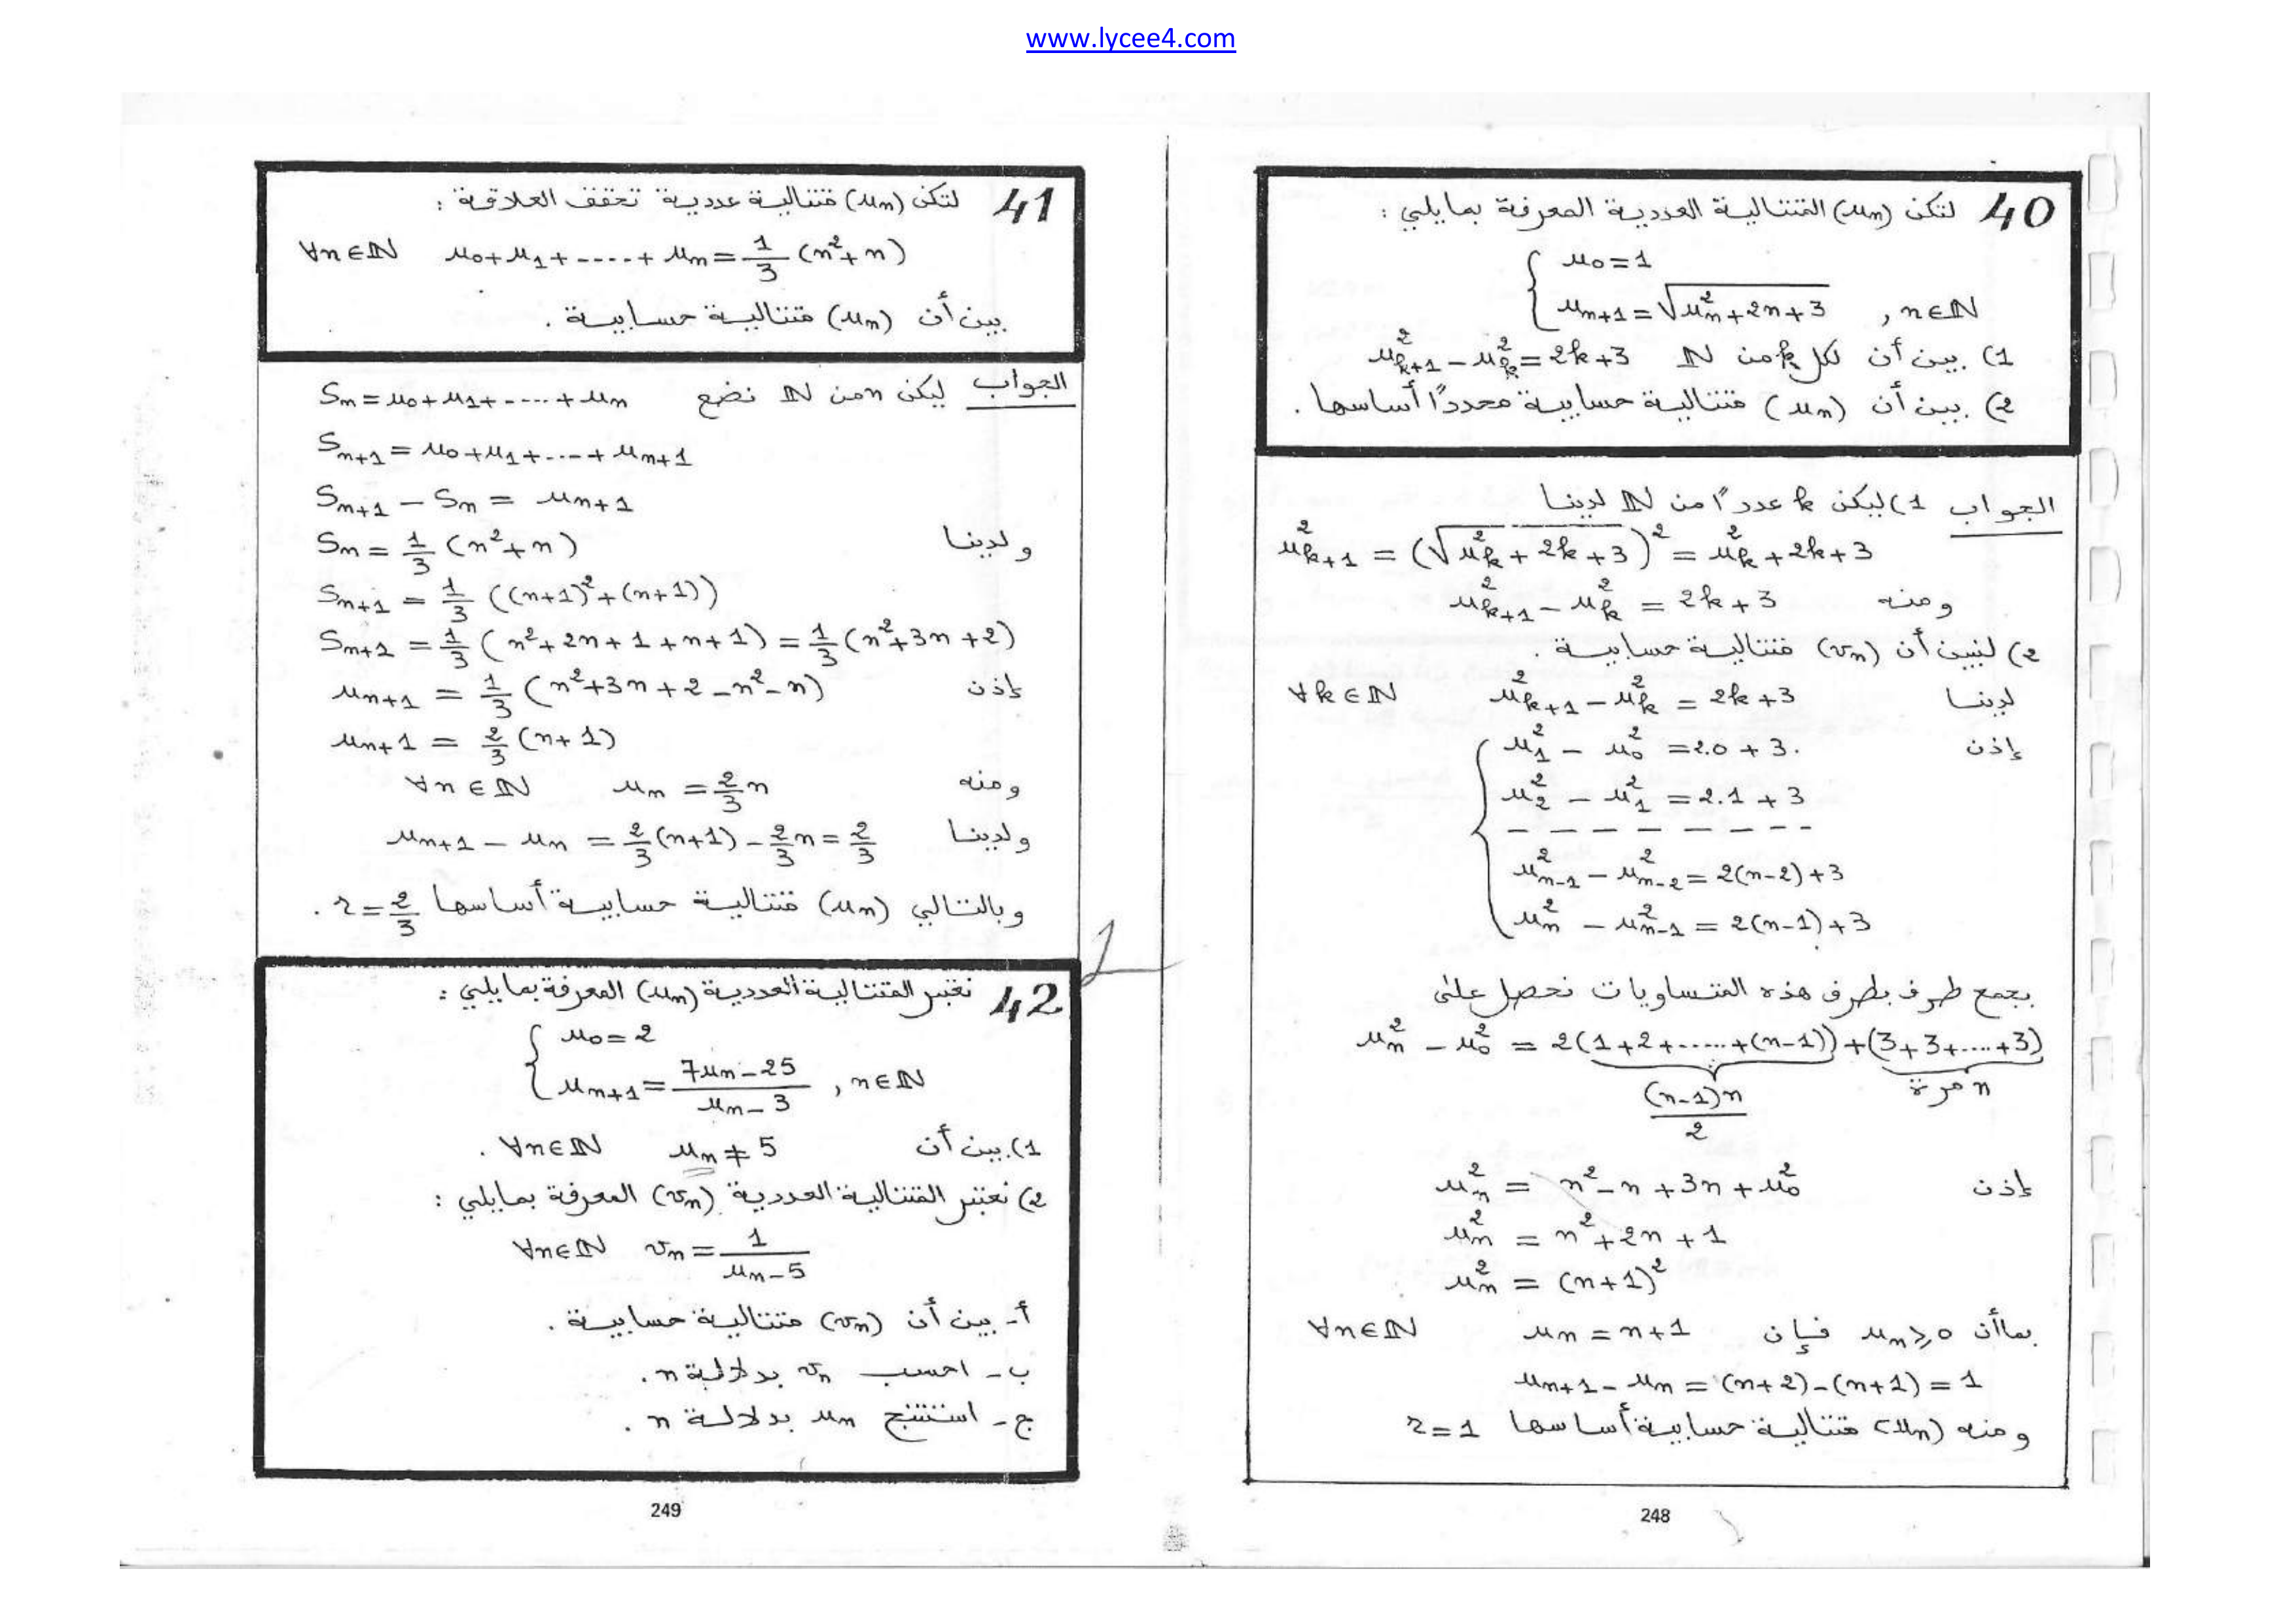 www.lycee4.com
40 لتكن (uₙ) المتتالية العددية المعرفة بمايلي :
u₀ = 1
uₙ₊₁ = √(uₙ² + 2n + 3) , n∈ℕ
1) بين أن لكل k من ℕ u²ₖ₊₁ − u²ₖ = 2k + 3
2) بين أن (uₙ) متتالية حسابية محددًا أساسها .
الجواب 1) ليكن k عددًا من ℕ لدينا
u²ₖ₊₁ = (√(u²ₖ + 2k + 3))² = u²ₖ + 2k + 3
ومنه u²ₖ₊₁ − u²ₖ = 2k + 3
2) لنبين أن (vₙ) متتالية حسابية .
لدينا u²ₖ₊₁ − u²ₖ = 2k + 3 ∀k∈ℕ
إذن u²₁ − u²₀ = 2.0 + 3.
u²₂ − u²₁ = 2.1 + 3
− − − − − − − − −
u²ₙ₋₁ − u²ₙ₋₂ = 2(n−2) + 3
u²ₙ − u²ₙ₋₁ = 2(n−1) + 3
بجمع طرف بطرف هذه المتساويات نحصل على
u²ₙ − u²₀ = 2(1+2+......+(n−1)) + (3+3+....+3)
(n−1)n / 2 n مرة
إذن u²ₙ = n² − n + 3n + u²₀
u²ₙ = n² + 2n + 1
u²ₙ = (n+1)²
بما أن uₙ ⩾ 0 فإن uₙ = n+1 ∀n∈ℕ
uₙ₊₁ − uₙ = (n+2) − (n+1) = 1
ومنه (uₙ) متتالية حسابية أساسها r = 1
248
41 لتكن (uₙ) متتالية عددية تحقق العلاقة :
∀n∈ℕ u₀ + u₁ + ..... + uₙ = 1/3 (n² + n)
بين أن (uₙ) متتالية حسابية .
الجواب ليكن n من ℕ نضع Sₙ = u₀ + u₁ + ..... + uₙ
Sₙ₊₁ = u₀ + u₁ + .... + uₙ₊₁
Sₙ₊₁ − Sₙ = uₙ₊₁
ولدينا Sₙ = 1/3 (n² + n)
Sₙ₊₁ = 1/3 ((n+1)² + (n+1))
Sₙ₊₁ = 1/3 (n² + 2n + 1 + n + 1) = 1/3 (n² + 3n + 2)
إذن uₙ₊₁ = 1/3 (n² + 3n + 2 − n² − n)
uₙ₊₁ = 2/3 (n + 1)
ومنه uₙ = 2/3 n ∀n∈ℕ
ولدينا uₙ₊₁ − uₙ = 2/3 (n+1) − 2/3 n = 2/3
وبالتالي (uₙ) متتالية حسابية أساسها r = 2/3 .
42 نعتبر المتتالية العددية (uₙ) المعرفة بمايلي :
u₀ = 2
uₙ₊₁ = (7uₙ − 25)/(uₙ − 3) , n∈ℕ
1) بين أن uₙ ≠ 5 ∀n∈ℕ .
2) نعتبر المتتالية العددية (vₙ) المعرفة بمايلي :
∀n∈ℕ vₙ = 1/(uₙ − 5)
أ- بين أن (vₙ) متتالية حسابية .
ب- احسب vₙ بدلالة n .
ج- استنتج uₙ بدلالة n .
249